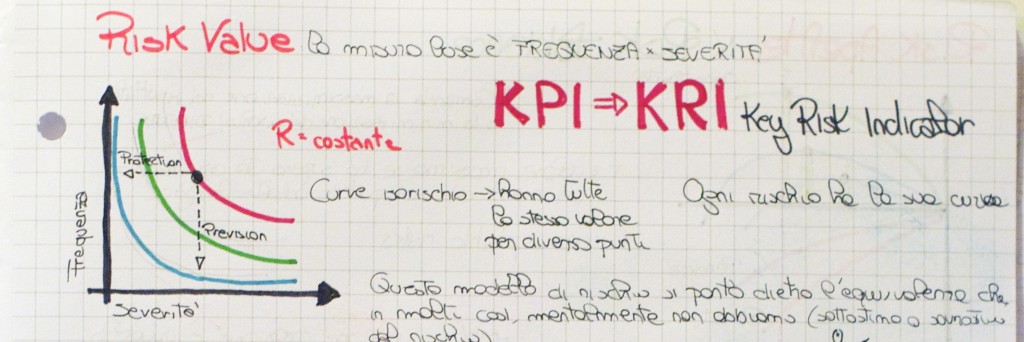 Risk Value la misura base è FREQUENZA × SEVERITÀ
KPI ⇒ KRI Key Risk Indicator
R = costante
Protection
Prevision
Frequenza
Severità
Curve isorischio → hanno tutte
lo stesso valore
per diversi punti
Ogni rischio ha la sua curva
Questo modello di rischio si porta dietro l'equivalenza che,
in molti casi, mentalmente non abbiamo (sottostima o
del rischio)